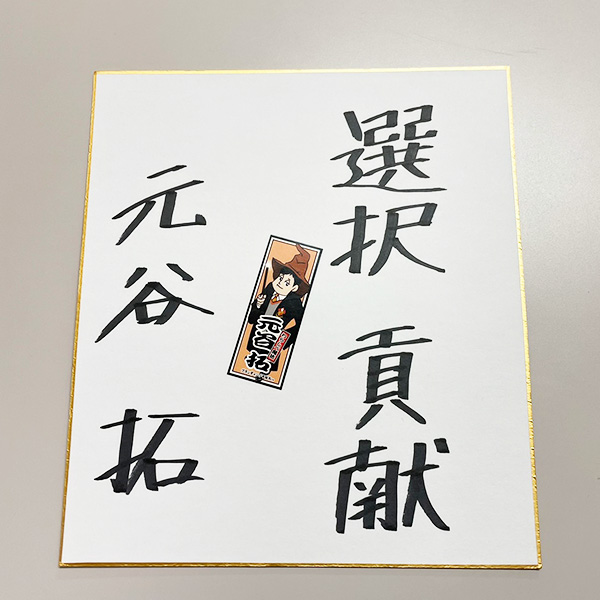 選択 貢献
元谷 拓
元谷 拓